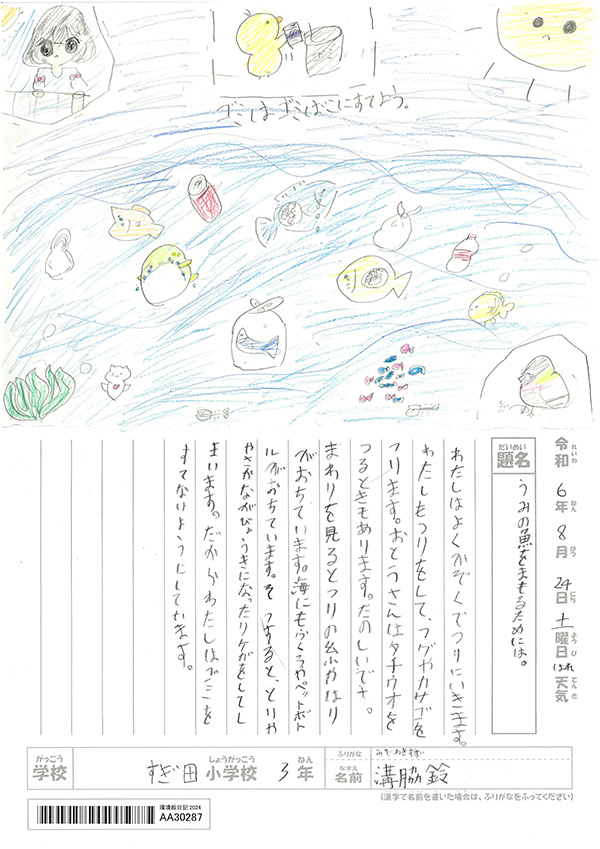 ゴミはゴミばこにすてよう。
令和6年8月24日土曜日 はれ 天気
れいわ ねん がつ にち ようび てんき
だいめい
題名
うみの魚をまもるためには。
わたしはよくかぞくでつりにいきます。
わたしもつりをして、フグやカサゴを
つります。おとうさんはタチウオを
つるときもあります。たのしいです。
まわりを見るとつりの糸やはり
がおちています。海にもふくろやペットボト
ルがおちています。そうすると、とりや
やさかながびょうきになったりケガをしてし
まいます。だからわたしはゴミを
すてないようにしていきます。
がっこう
学校
すぎ田
しょうがっこう
小学校
3
ねん
年
ふりがな
みぞわきすず
なまえ
名前
溝脇鈴
(漢字で名前を書いた場合は、ふりがなをふってください)
環境絵日記2024
AA30287